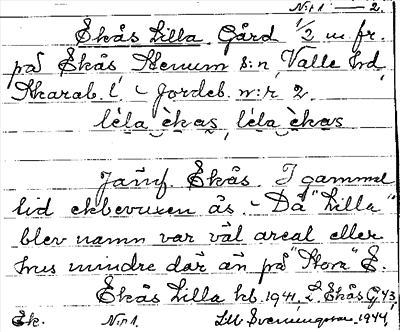 Nr 1. — 2.
Ekås Lilla Gård 1/2 m. fr.
på Ekås Stenum s:n, Valle hd,
Skarab. l. – Jordeb. n:r 2.
lèla èkas, lèla èkas
Jämf. Ekås. I gammal
tid ekbevuxen ås. – Då "Lilla"
blev namn var väl areal eller
hus mindre där än på "Stora" E.
Ekås Lilla kb. 1941, L. Ekås G. 43,
Ek. Nr 1. Lilli Svenningsson 1944,